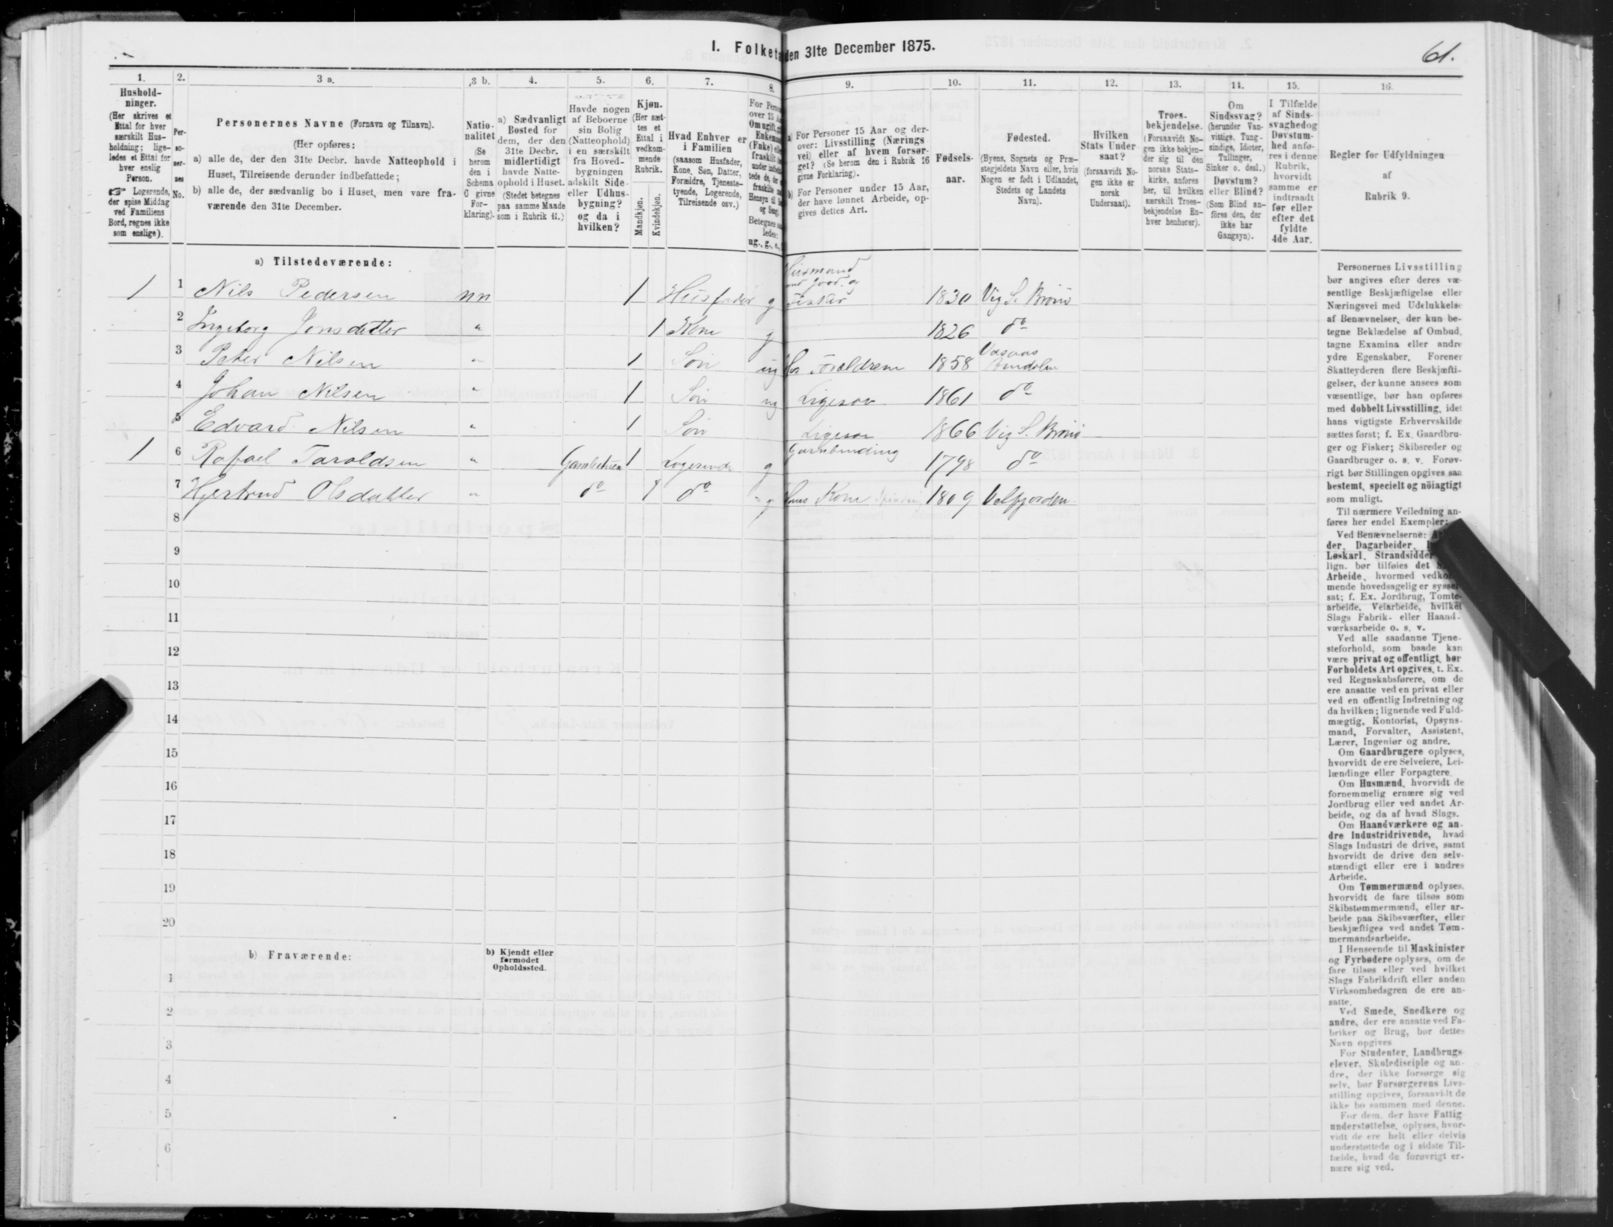 I. Folket
den 31te December 1875.
61.
1.
2.
3 a.
3 b.
4.
5.
6.
7.
8.
9.
10.
11.
12.
13.
14.
15.
16.
Hushold-
ninger.
(Her skrives et
Ettal for hver
særskilt Hus-
holdning; lige-
ledes et Ettal for
hver enslig
Person.
☞ Logerende,
der spise Middag
ved Familiens
Bord, regnes ikke
som enslige).
Per-
so-
ner-
nes
No.
Personernes Navne (Fornavn og Tilnavn).
(Her opføres:
a) alle de, der den 31te Decbr. havde Natteophold i
Huset, Tilreisende derunder indbefattede;
b) alle de, der sædvanlig bo i Huset, men vare fra-
værende den 31te December.
Natio-
nalitet
(Se
herom
den i
Schema
C givne
For-
klaring).
a) Sædvanligt
Bosted for
dem, der den
31te Decbr.
midlertidigt
havde Natte-
ophold i Huset.
(Stedet betegnes
paa samme Maade
som i Rubrik 11.)
Havde nogen
af Beboerne
sin Bolig
(Natteophold)
i en særskilt
fra Hoved-
bygningen
adskilt Side-
eller Udhus-
bygning?
og da i
hvilken?
Kjøn.
(Her sæt-
tes et
Ettal i
vedkom-
mende
Rubrik.
Mandkjøn.
Kvindekjøn.
Hvad Enhver er
i Familien
(saasom Husfader,
Kone, Søn, Datter,
Forældre, Tjeneste-
tyende, Logerende,
Tilreisende osv.)
a) For Personer 15 Aar og der-
over: Livsstilling (Nærings
vei) eller af hvem forsør-
get? (Se herom den i Rubrik 16
givne Forklaring).
b) For Personer under 15 Aar,
der have lønnet Arbeide, op-
gives dettes Art.
Fødsels-
aar.
Fødested.
(Byens, Sognets og Præ-
stegjeldets Navn eller, hvis
Nogen er født i Udlandet,
Stedets og Landets
Navn).
Hvilken
Stats Under
saat?
(forsaavidt No-
gen ikke er
norsk
Undersaat).
Troes-
bekjendelse.
(Forsaavidt No-
gen ikke bekjen-
der sig til den
norske Stats-
kirke, anføres
her, til hvilken
særskilt Troes-
bekjendelse En-
hver henhører).
Om
Sindssvag?
(herunder Van-
vittige, Tung-
sindige, Idioter,
Tullinger,
Sinker o. desl.)
Døvstum?
eller Blind?
(Som Blind an-
føres den, der
ikke har
Gangsyn).
I Tilfælde
af Sinds-
svaghed og
Døvstum-
hed anfø-
res i denne
Rubrik,
hvorvidt
samme er
indtraadt
før eller
efter det
fyldte
4de Aar.
Regler for Udfyldningen
af
Rubrik 9.
a) Tilstedeværende:
1 1 Nils Pedersen nn 1 Husfader g Husmand med Jord og Fisker 1830 Vig S. Brønø
2 Ingeborg Jensdatter " 1 Kone g 1826 do
3 Peter Nilsen " 1 Søn ug 1858
4 Johan Nilsen " 1 Søn ug Ligesaa 1861 do
5 Edvard Nilsen " 1 Søn Ligesaa 1866 Vig S. Brønø
1 6 Rafael Taraldsen " 1 Logerende g Garnbinding 1798 do
7 Hjertrud Olsdatter " do 1 do g hans Kone 1809 Velfjorden
8
9
10
11
12
13
14
15
16
17
18
19
20
b) Fraværende:
b) Kjendt eller
formodet
Opholdssted.
1
2
3
4
5
6
Personernes Livsstilling
bør angives efter deres væ-
sentlige Beskjæftigelse eller
Næringsvei med Udelukkelse
af Benævnelser, der kun be-
tegne Beklædelse af Ombud,
tagne Examina eller andre
ydre Egenskaber. Forener
Skatteyderen flere Beskjæfti-
gelser, der kunne ansees som
væsentlige, bør han opføres
med dobbelt Livsstilling, idet
hans vigtigste Erhvervskilde
sættes først; f. Ex. Gaardbru-
ger og Fisker; Skibsreder og
Gaardbruger o. s. v. Forøv-
rigt bør Stillingen opgives saa
bestemt, specielt og nøiagtigt
som muligt.
Til nærmere Veiledning an-
føres her endel Exempler:
Ved Benævnelserne:
der, Dagarbeider,
Løskarl, Strandsidder
lign. bør tilføies det
Arbeide, hvormed vedkom-
mende hovedsagelig er syssel-
sat; f. Ex. Jordbrug, Tomte-
arbeide, Veiarbeide, hvilket
Slags Fabrik- eller Haand-
værksarbeide o. s. v.
Ved alle saadanne Tjene-
steforhold, som baade kan
være privat og offentligt, bør
Forholdets Art opgives, t. Ex.
ved Regnskabsførere, om de
ere ansatte ved en privat eller
ved en offentlig Indretning og
da hvilken; lignende ved Fuld-
mægtig, Kontorist, Opsyns-
mand, Forvalter, Assistent,
Lærer, Ingeniør og andre.
Om Gaardbrugere oplyses,
hvorvidt de ere Selveiere, Lei-
lændinge eller Forpagtere.
Om Husmænd, hvorvidt de
fornemmelig ernære sig ved
Jordbrug eller ved andet Ar-
beide, og da af hvad Slags.
Om Haandværkere og an-
dre Industridrivende, hvad
Slags Industri de drive, samt
hvorvidt de drive den selv-
stændigt eller ere i andres
Arbeide.
Om Tømmermænd oplyses,
hvorvidt de fare tilsøs som
Skibstømmermænd, eller ar-
beide paa Skibsværfter, eller
beskjæftiges ved andet Tøm-
mermandsarbeide.
I Henseende til Maskinister
og Fyrbødere oplyses, om de
fare tilsøs eller ved hvilket
Slags Fabrikdrift eller anden
Virksomhedsgren de ere an-
satte.
Ved Smede, Snedkere og
andre, der ere ansatte ved Fa-
briker og Brug, bør dettes
Navn opgives
For Studenter, Landbrugs-
elever, Skoledisciple og an-
dre, der ikke forsørge sig
selv, bør Forsørgerens Livs-
stilling opgives, forsaavidt de
ikke bo sammen med denne.
For dem, der have Fattig-
understøttelse, oplyses, hvor-
vidt de ere helt eller delvis
understøttede og i sidste Til-
fælde, hvad de forøvrigt er-
nære sig ved.